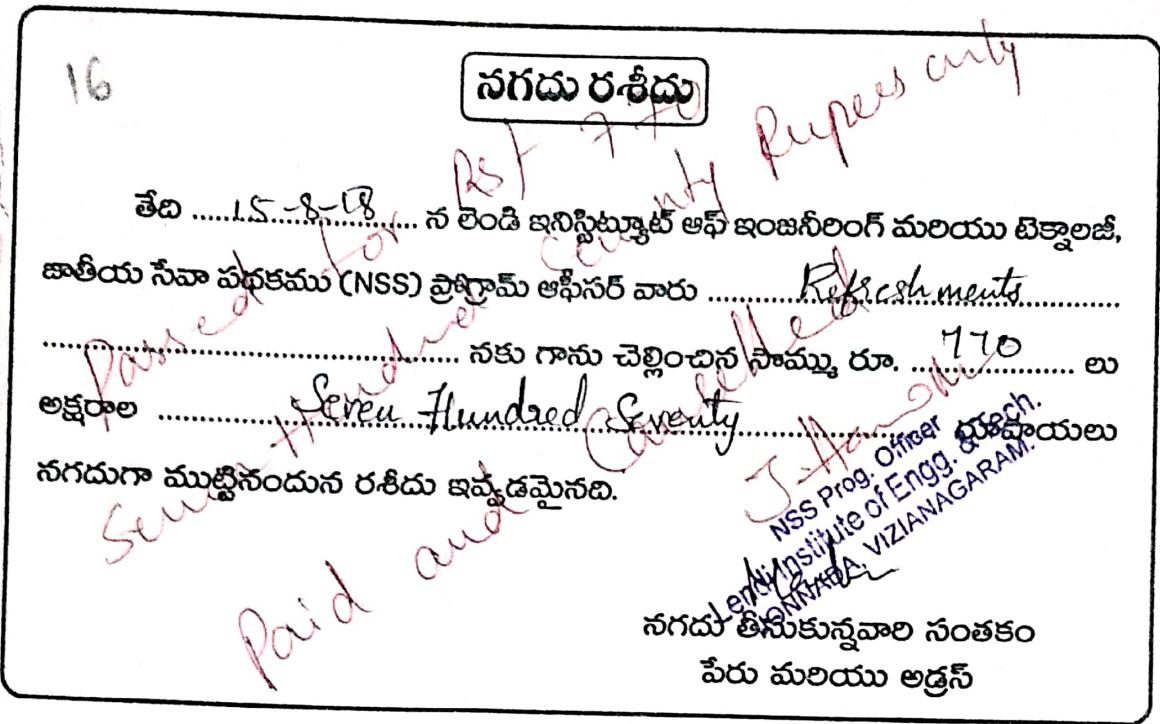 16
నగదు రశీదు
తేది .....15-8-18..... న లెండి ఇనిస్టిట్యూట్ ఆఫ్ ఇంజనీరింగ్ మరియు టెక్నాలజీ,
జాతీయ సేవా పథకము (NSS) ప్రోగ్రామ్ ఆఫీసర్ వారు ..........Refreshments..........
.......................................... నకు గాను చెల్లించిన సొమ్ము రూ. .....770..... లు
అక్షరాల ..........Seven Hundred Seventy.......... రూపాయలు
నగదుగా ముట్టినందున రశీదు ఇవ్వడమైనది.
Passed for Rs/ 770
Seven Hundred Seventy Rupees only
Paid and Cancelled
NSS Prog. Officer
Lendi Institute of Engg. & Tech.
JONNADA, VIZIANAGARAM.
నగదు తీసుకున్నవారి సంతకం
పేరు మరియు అడ్రస్